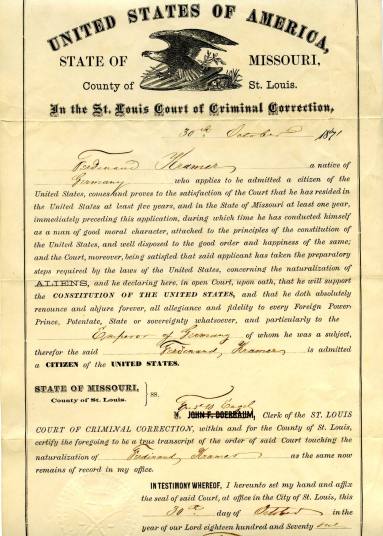 UNITED STATES OF AMERICA,
STATE OF MISSOURI,
County of St. Louis.
In the St. Louis Court of Criminal Correction,
30th October 1871
Ferdinand Kramer a native of
Germany who applies to be admitted a citizen of the
United States, comes and proves to the satisfaction of the Court that he has resided
in the United States at least five years, and in the State of Missouri at least one year,
immediately preceding this application, during which time he has conducted himself
as a man of good moral character, attached to the principles of the constitution
of the United States, and well disposed to the good order and happiness of the same;
and the Court, moreover, being satisfied that said applicant has taken the preparatory
steps required by the laws of the United States, concerning the naturalization of
ALIENS, and he declaring here, in open Court, upon oath, that he will support
the CONSTITUTION OF THE UNITED STATES, and that he doth absolutely
renounce and abjure forever, all allegiance and fidelity to every Foreign Power
Prince, Potentate, State or sovereignty whatsoever, and particularly to the
Emperor of Germany of whom he was a subject,
therefor the said Ferdinand Kramer is admitted
a CITIZEN of the UNITED STATES.
STATE OF MISSOURI,
County of St. Louis.
SS.
Engel
JOHN P. DOERBAUM, Clerk of the ST. LOUIS
COURT OF CRIMINAL CORRECTION, within and for the County of St. Louis,
certify the foregoing to be a true transcript of the order of said Court touching the
naturalization of Ferdinand Kramer as the same now
remains of record in my office.
IN TESTIMONY WHEREOF, I hereunto set my hand and affix
the seal of said Court, at office in the City of St. Louis, this
30th day of October in the
year of our Lord eighteen hundred and Seventy one